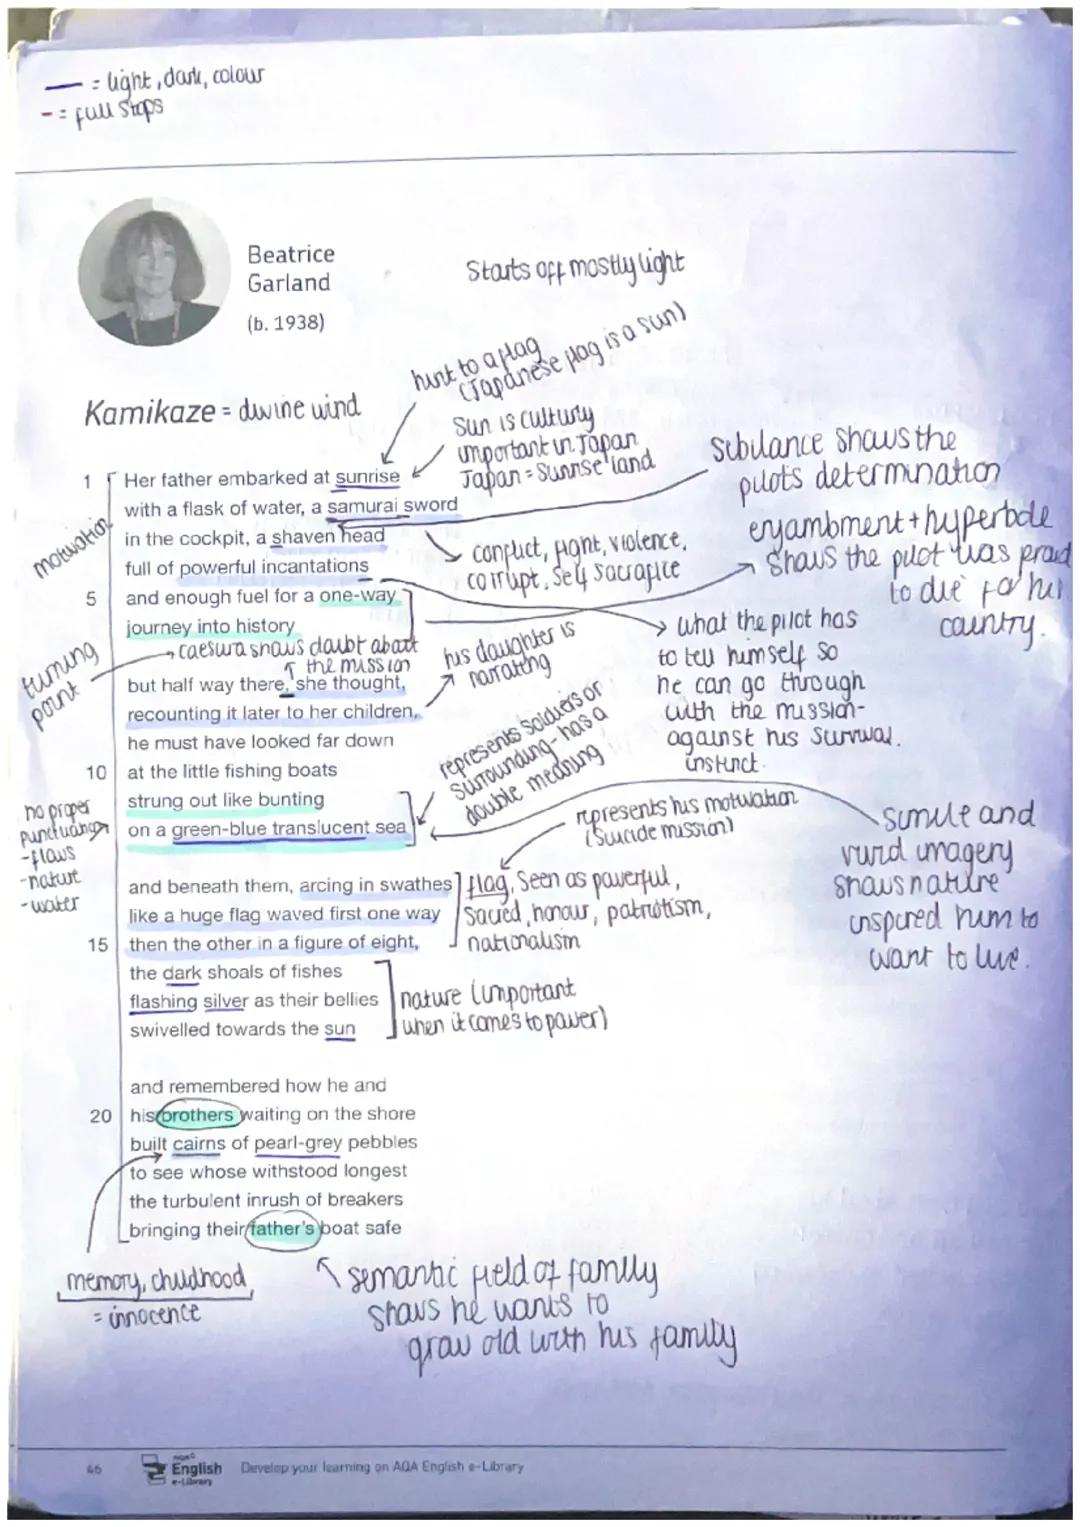 — = light, dark, colour
- = full stops
Beatrice
Garland
(b. 1938)
Starts off mostly light
hint to a flag
(Japanese flag is a sun)
Kamikaze = divine wind
Sun is culturly
important in Japan
Japan = Sunrise land
Sibilance shows the
pilots determination
enjambment + hyperbole
shows the pilot was proud
to die for his
country.
1 Her father embarked at sunrise
with a flask of water, a samurai sword
in the cockpit, a shaven head
full of powerful incantations
5 and enough fuel for a one-way
journey into history
motivation
conflict, fight, violence,
corrupt, self sacrafice
turning
point
caesura shows doubt about
the mission
his daughter is
narrating
what the pilot has
to tell himself so
he can go through
with the mission-
against his survival
instinct.
but half way there, she thought,
recounting it later to her children,
he must have looked far down
10 at the little fishing boats
strung out like bunting
on a green-blue translucent sea
represents soldiers or
surrounding - has a
double meaning
no proper
punctuation
-flows
-nature
-water
represents his motivation
(suicide mission)
Simile and
vivid imagery
shows nature
inspired him to
want to live.
and beneath them, arcing in swathes
like a huge flag waved first one way
15 then the other in a figure of eight,
the dark shoals of fishes
flashing silver as their bellies
swivelled towards the sun
flag, Seen as powerful,
sacred, honour, patriotism,
nationalism
nature (important
when it comes to power)
and remembered how he and
20 his brothers waiting on the shore
built cairns of pearl-grey pebbles
to see whose withstood longest
the turbulent inrush of breakers
bringing their father's boat safe
memory, childhood
= innocence
semantic field of family
shows he wants to
grow old with his family
46
AQA
English
e-Library
Develop your learning on AQA English e-Library